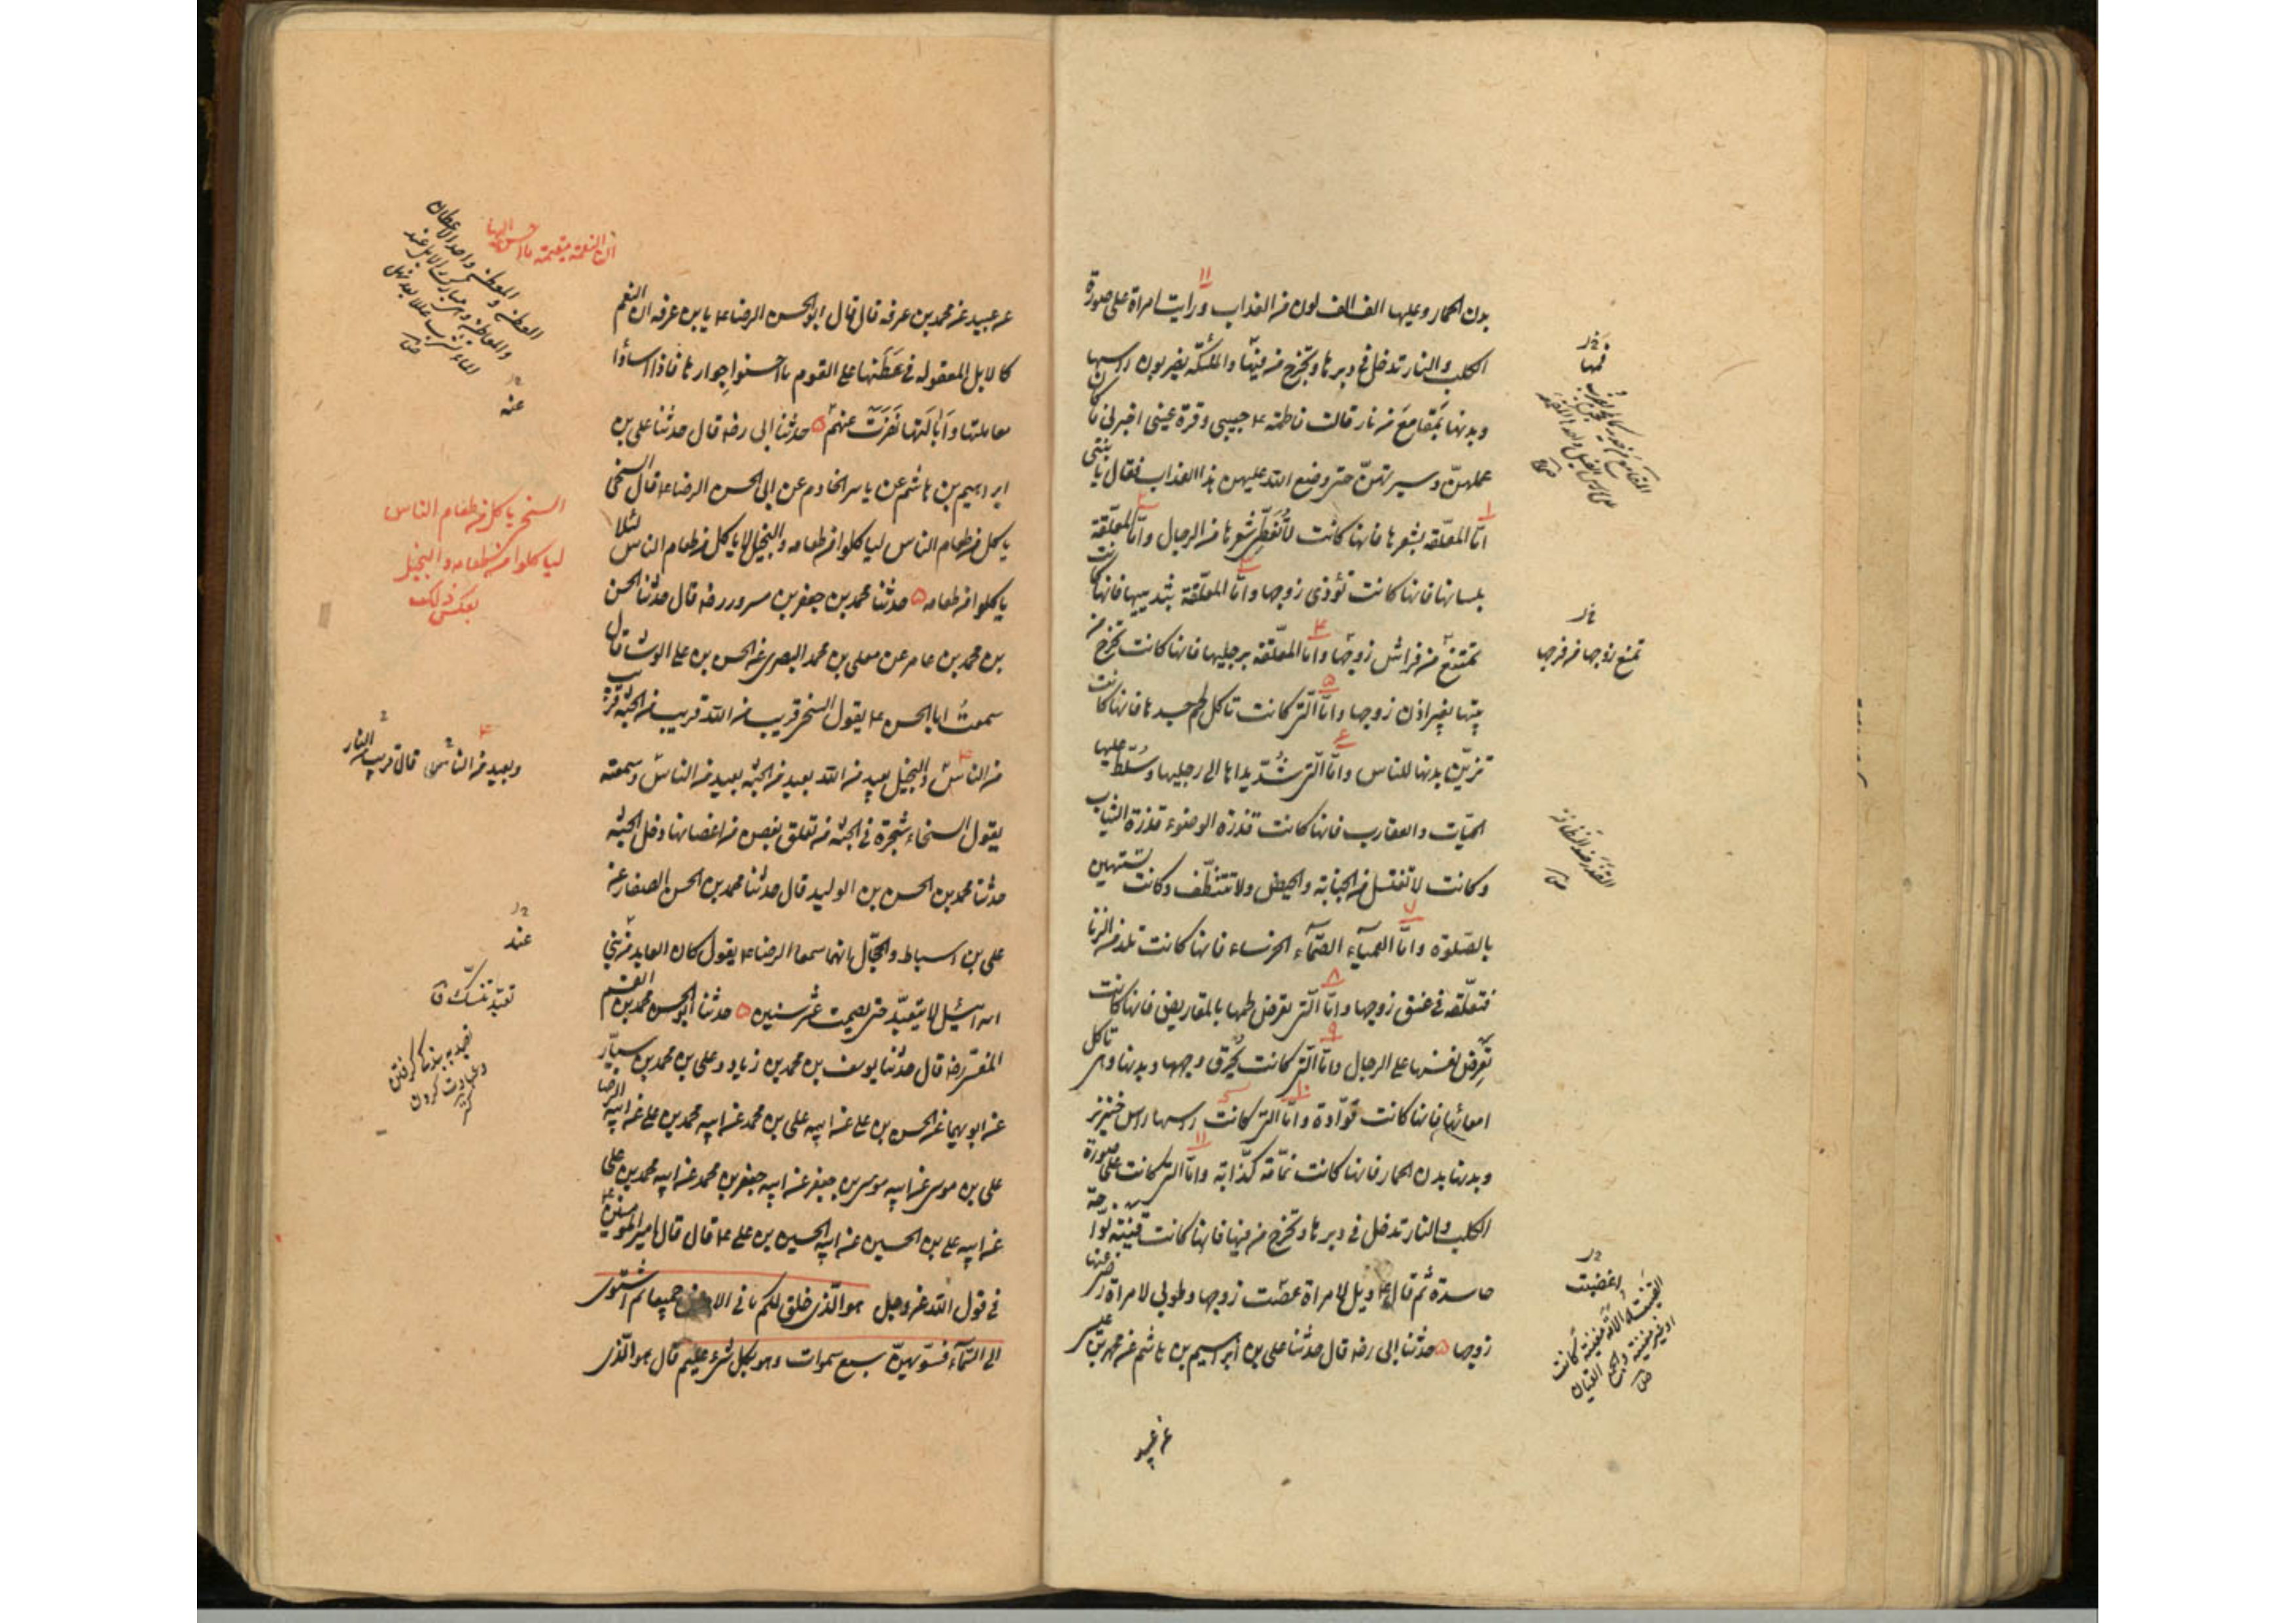 بدن الحمار وعليها الف الف لون من العذاب ورايت امراة على صورة
١١
الكلب والنار تدخل فى دبرها وتخرج من فيها والملئكة يضربون راسها
وبدنها بمقامع من نار قالت فاطمة ع حبيبى وقرة عينى اخبرنى ما كان
عملهنّ وسيرتهنّ حتى وضع الله عليهن هذا العذاب فقال يا بنتى
١
امّا المعلّقة بشعرها فانها كانت لا تغطّى شعرها من الرجال وامّا المعلّقة
بلسانها فانها كانت تؤذى زوجها وامّا المعلّقة بثدييها فانها كانت
تمتنع من فراش زوجها وامّا المعلّقة برجليها فانها كانت تخرج من
٤
بيتها بغير اذن زوجها وامّا التى كانت تاكل لحم جسدها فانها كانت
٥
تزيّن بدنها للناس وامّا التى شدّ يداها الى رجليها وسلّط عليها
الحيّات والعقارب فانها كانت قذرة الوضوء قذرة الثياب
وكانت لا تغتسل من الجنابة والحيض ولا تتنظّف وكانت تستهين
بالصّلوة وامّا العمياء الصمّاء الخرساء فانها كانت تلد من الزنا
٧
فتعلّقه فى عنق زوجها وامّا التى يقرض لحمها بالمقاريض فانها كانت
٨
تعرض نفسها على الرجال وامّا التى كانت يحرق وجهها وبدنها وهى تاكل
٩
امعائها فانها كانت قوّادة وامّا التى كانت راسها راس خنزير
١٠
وبدنها بدن الحمار فانها كانت نمّامة كذّابة وامّا التى كانت على صورة
١١
الكلب والنار تدخل فى دبرها وتخرج من فيها فانها كانت قينة نوّاحة
حاسدة ثم قال ع ويل لامراة عصت زوجها وطوبى لامراة رضى عنها
زوجها حدثنا ابى رضه قال حدثنا على بن ابرهيم بن هاشم عن محمد بن عيسى
عن عبيد
فمها
تمنع زوجها من فرجها
القذر ضد النظافة
اغضبت
القينة الامة مغنية كانت
او غير مغنية والجمع القيان
عن عبيد عن محمد بن عرفه قال قال ابو الحسن الرضا ع يا بن عرفه ان النعم
كالابل المعقوله فى عَطَنها على القوم ما احسنوا جوارها فاذا اساؤا
معاملتها وانالتها نفرت عنهم حدثنا ابى رضه قال حدثنا على بن
ابرهيم بن هاشم عن ياسر الخادم عن ابى الحسن الرضا ع قال السخى
ياكل من طعام الناس لياكلوا من طعامه والبخيل لا ياكل من طعام الناس لئلا
ياكلوا من طعامه حدثنا محمد بن جعفر بن مسرور رضه قال حدثنا الحسين
بن محمد بن عامر عن معلى بن محمد البصرى عن الحسن بن على الوشا قال
سمعت ابا الحسن ع يقول السخى قريب من الله قريب من الجنة قريب
من الناس والبخيل بعيد من الله بعيد من الجنة بعيد من الناس وسمعته
يقول السخاء شجرة فى الجنة من تعلق بغصن من اغصانها دخل الجنة
حدثنا محمد بن الحسن بن الوليد قال حدثنا محمد بن الحسن الصفار عن
على بن اسباط والحجّال انهما سمعا الرضا ع يقول كان العابد من بنى
اسرائيل لا يتعبّد حتى يصمت عشر سنين حدثنا ابو الحسن محمد بن القسم
المفسّر رضه قال حدثنا يوسف بن محمد بن زياد وعلى بن محمد بن سيّار
عن ابويهما عن الحسن بن على عن ابيه على بن محمد عن ابيه محمد بن على عن ابيه الرضا
على بن موسى عن ابيه موسى بن جعفر عن ابيه جعفر بن محمد عن ابيه محمد بن على
عن ابيه على بن الحسين عن ابيه الحسين بن على ع قال قال امير المؤمنين ع
فى قول الله عز وجل هو الّذى خلق لكم ما فى الارض جميعا ثم استوى
الى السّماء فسوّيهنّ سبع سموات وهو بكل شىء عليم قال هو الّذى
ان النعمة مقيمة ما احسن اليها
عنه
السخى ياكل من طعام الناس
لياكلوا من طعامه والبخيل
بعكس ذلك
وبعيد من الناس قال قريب من النار
عند
تعبّد تنسّك ق